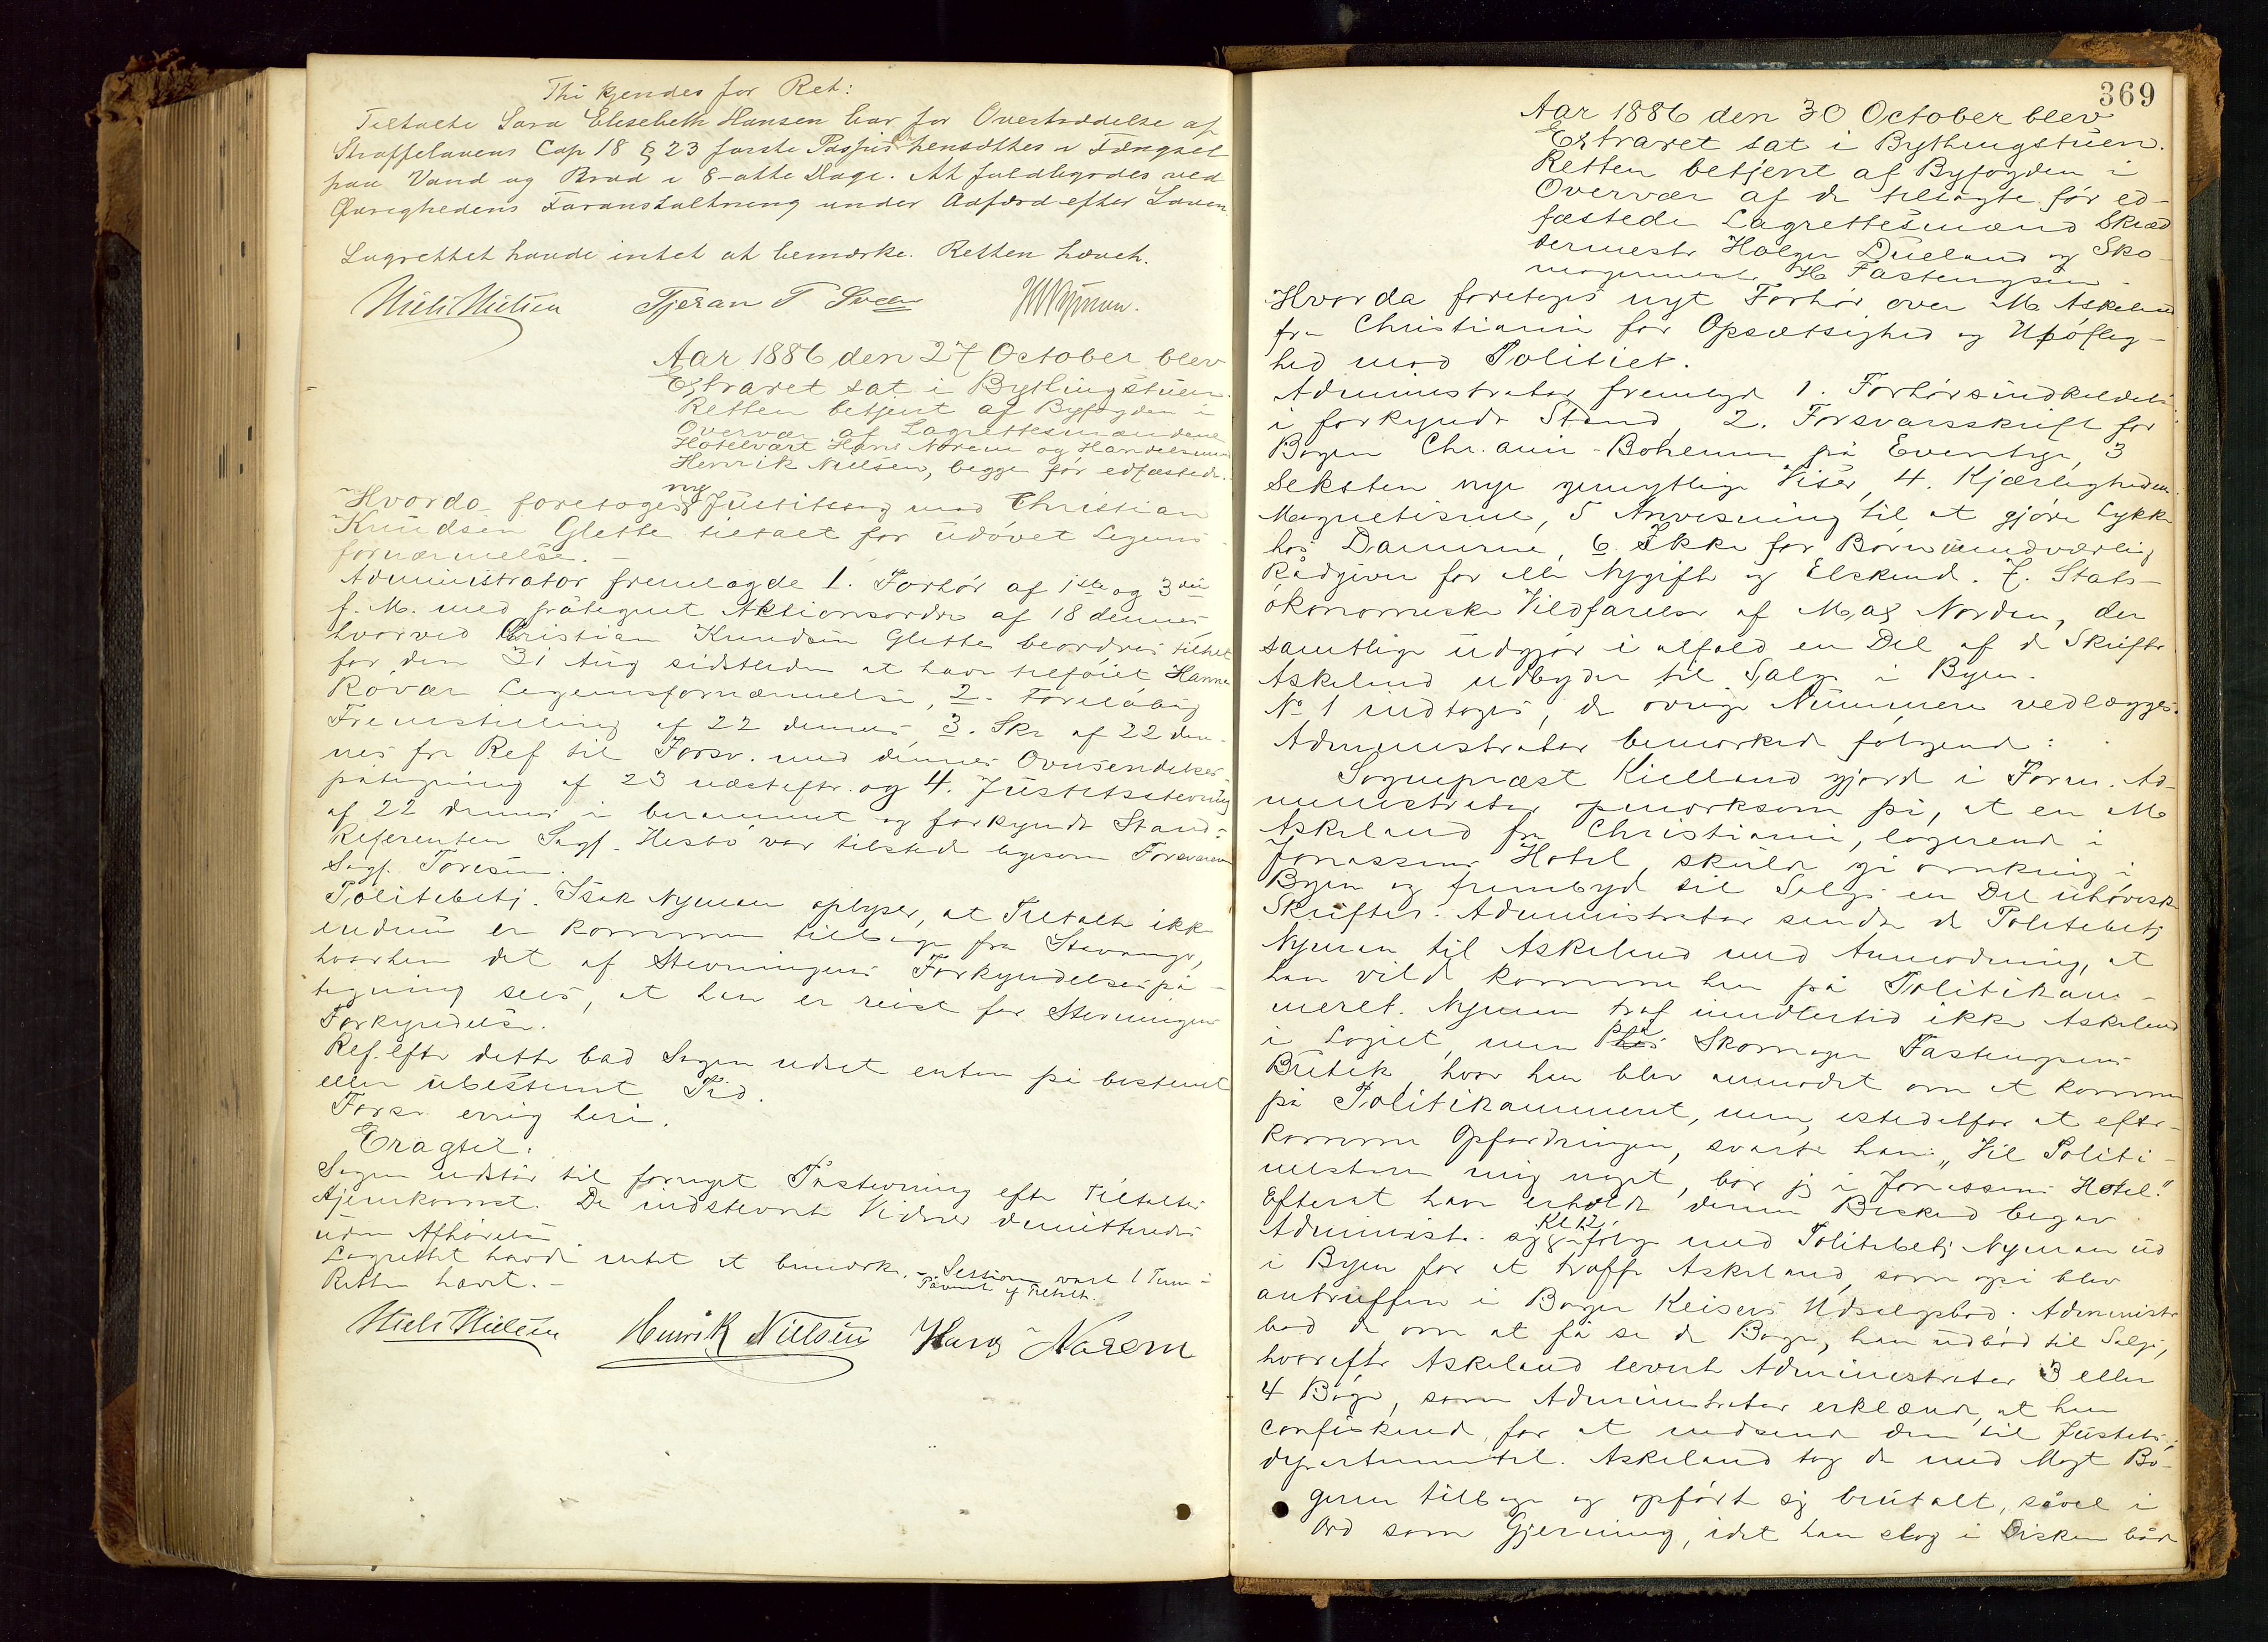 Thi kjendes for Ret:
Tiltalte Sara Elisebeth Hansen bør for Overtrædelse af
Straffelovens Cap 18 § 23 første Passus hensættes i Fængsel
paa Vand og Brød i 8-otte Dage. At fuldbyrdes ved
Øvrighedens Foranstaltning under Adfærd efter Loven
Lagrettet havde intet at bemærke. Retten hævet.
Niels Nielsen Tjeran T Sveen
Aar 1886 den 27 October blev
Extraret sat i Bythingstuen.
Retten betjent af Byfogden i
Overvær af Lagrettesmændene
Hotelvært Hans Norem og Handelsmand
Henrik Nielsen, begge før edfæstede.
Hvorda foretoges ny Justitssag mod Christian
Knudsen Glette tiltalt for udøvet Legems-
fornærmelse.
Administrator fremlagde 1. Forhør af 1ste og 3die
f. M. med påtegnet Aktionsordre af 18 dennes,
hvorved Christian Knudsen Glette beordres tiltalt
for den 31 Aug sidstleden at have tilføiet Hanne
Røvær Legemsfornærmelse, 2. Foreløbig
Fremstilling af 22 dennes, 3. Skr af 22 den-
nes fra Ref til Forsv. med dennes Oversendelses-
påtegning af 23 næstefter og 4. Justitsstevning
af 22 dennes i berammet og forkyndt Stand.
Referenten Sagf. Hesbø var tilstede ligesom Forsvareren
Sagf. Toresen.
Politibetj. Isak Nyman oplyser, at Tiltalte ikke
endnu er kommen tilbage fra Stavanger,
hvorhen det af Stevningens Forkyndelsespå-
tegning sees, at han er reist før Stevningens
Forkyndelse.
Ref. efter dette bad Sagen udsat enten på bestemt
eller ubestemt Tid.
Forsv. enig heri.
Eragtet:
Sagen udstår til fornyet Påstevning efter Tiltaltes
Hjemkomst. De indstevnte Vidner demitteredes
uden Afhørelse
Lagrettet havde intet at bemærke. – Session varet 1 Time
Retten hævet. –
Niels Nielsen Henrik Nielsen Hans Norem
369
Aar 1886 den 30 October blev
Extraret sat i Bythingstuen.
Retten betjent af Byfogden i
Overvær af de tilsagte før ed-
fæstede Lagrettesmænd Skræd
dermester Holger Dueland og Sko-
magermester H Fastingsen
Hvorda foretoges nyt Forhør over M. Askeland
fra Christiania for Opsætsighed og Uhøflig-
hed mod Politiet.
Administrator fremlagde 1. Forhørsindkaldelse
i forkyndt Stand, 2. Forsvarsskrift for
Bogen Chr.ania-Bohemen på Eventyr, 3
Seksten nye gemytlige Viser, 4. Kjærlighedens
Magnetisme, 5 Anvisning til at gjøre Lykke
hos Damerne, 6. Ikke for Børn uundværlig
Rådgiver for alle Nygifte og Elskend. 7. Stats-
økonomiske Vildfarelser af Max Norden, der
samtlige udgjør i alfald en Del af de Skrifter
Askeland udbyder til Salgs i Byen.
No 1 indtages, de øvrige Nummere vedlægges.
Administrator bemærked følgende:
Sognepræst Kielland gjorde i Form. Ad-
ministrator opmærksom på, at en M
Askeland fra Christiania, logerende i
Jonassens Hotel skulde gå omkring i
Byen og frembyd til Salgs en Del uhøviske
Skrifter. Administrator sendte da Politibetj
Nyman til Askeland med Anmodning, at
han vilde komme hen på Politikam-
meret. Nyman traf imidlertid ikke Askeland
i Logiet, men på Skomager Fastingsens
Butik hvor han blev anmodet om at komme
på Politikammeret, men, istedetfor at efter-
komme Opfordringen, svarte han: „Vil Politi-
mesteren mig noget, bor jeg i Jonassens Hotel."
Efterat have erholdt denne Besked begav
Administr. sig i følge med Politibetj Nyman ud
i Byen for at træffe Askeland, som også blev
antruffen i Bager Keisers Udsalgsbod. Administr
bad da om at få se de Bøger, han udbød til Salgs,
hvorefter Askeland leverte Administrator 3 eller
4 Bøger, som Administrator erklærede, at han
confiskered, for at indsende dem til Justits-
departementet. Askeland tog da med Magt Bø-
gerne tilbage og opførte sig brutalt, såvel i
Ord som Gjerning, idet han slog i Disken både